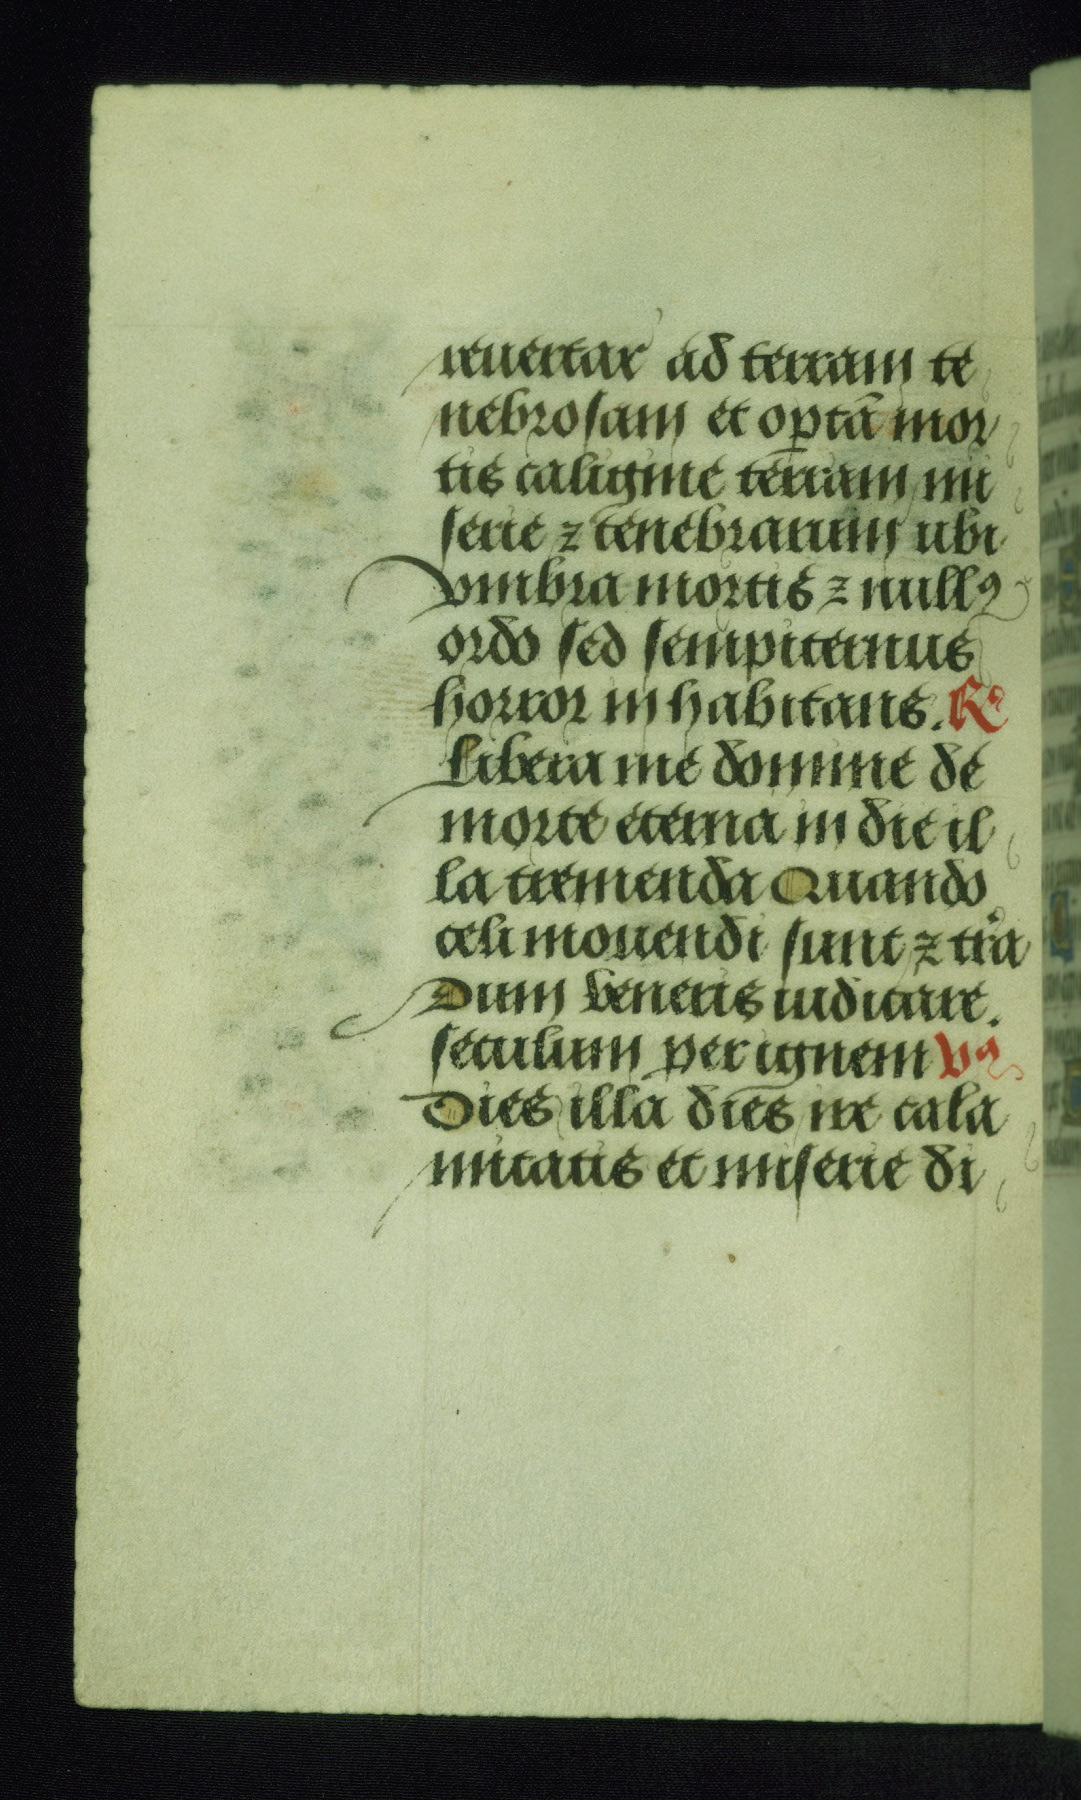 reuertar ad terram te
nebrosam et optã mor
tis caligine terram mi
serie ⁊ tenebrarum ubi
vmbra mortis ⁊ nullꝰ
ordo sed sempiternus
horror in habitans. R̃
Libera me domine de
morte eterna in die il
la tremenda Quando
celi mouendi sunt ⁊ tr̃a
Dum veneris iudicare.
seculum per ignem Vꝰ
Dies illa dies ire cala
mitatis et miserie di